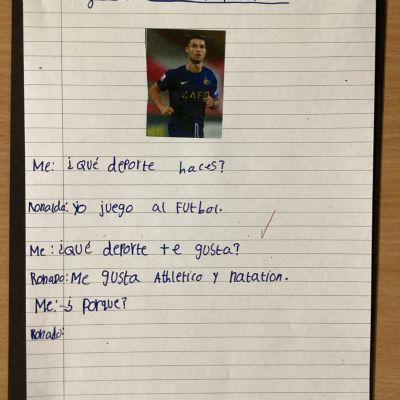 KAFD
Me: ¿Qué deporte haces?
Ronaldo: Yo juego al Futbol.
Me: ¿Qué deporte te gusta?
Ronado: Me gusta Athletico y natation.
Me: ¿ Porque?
Ronado: